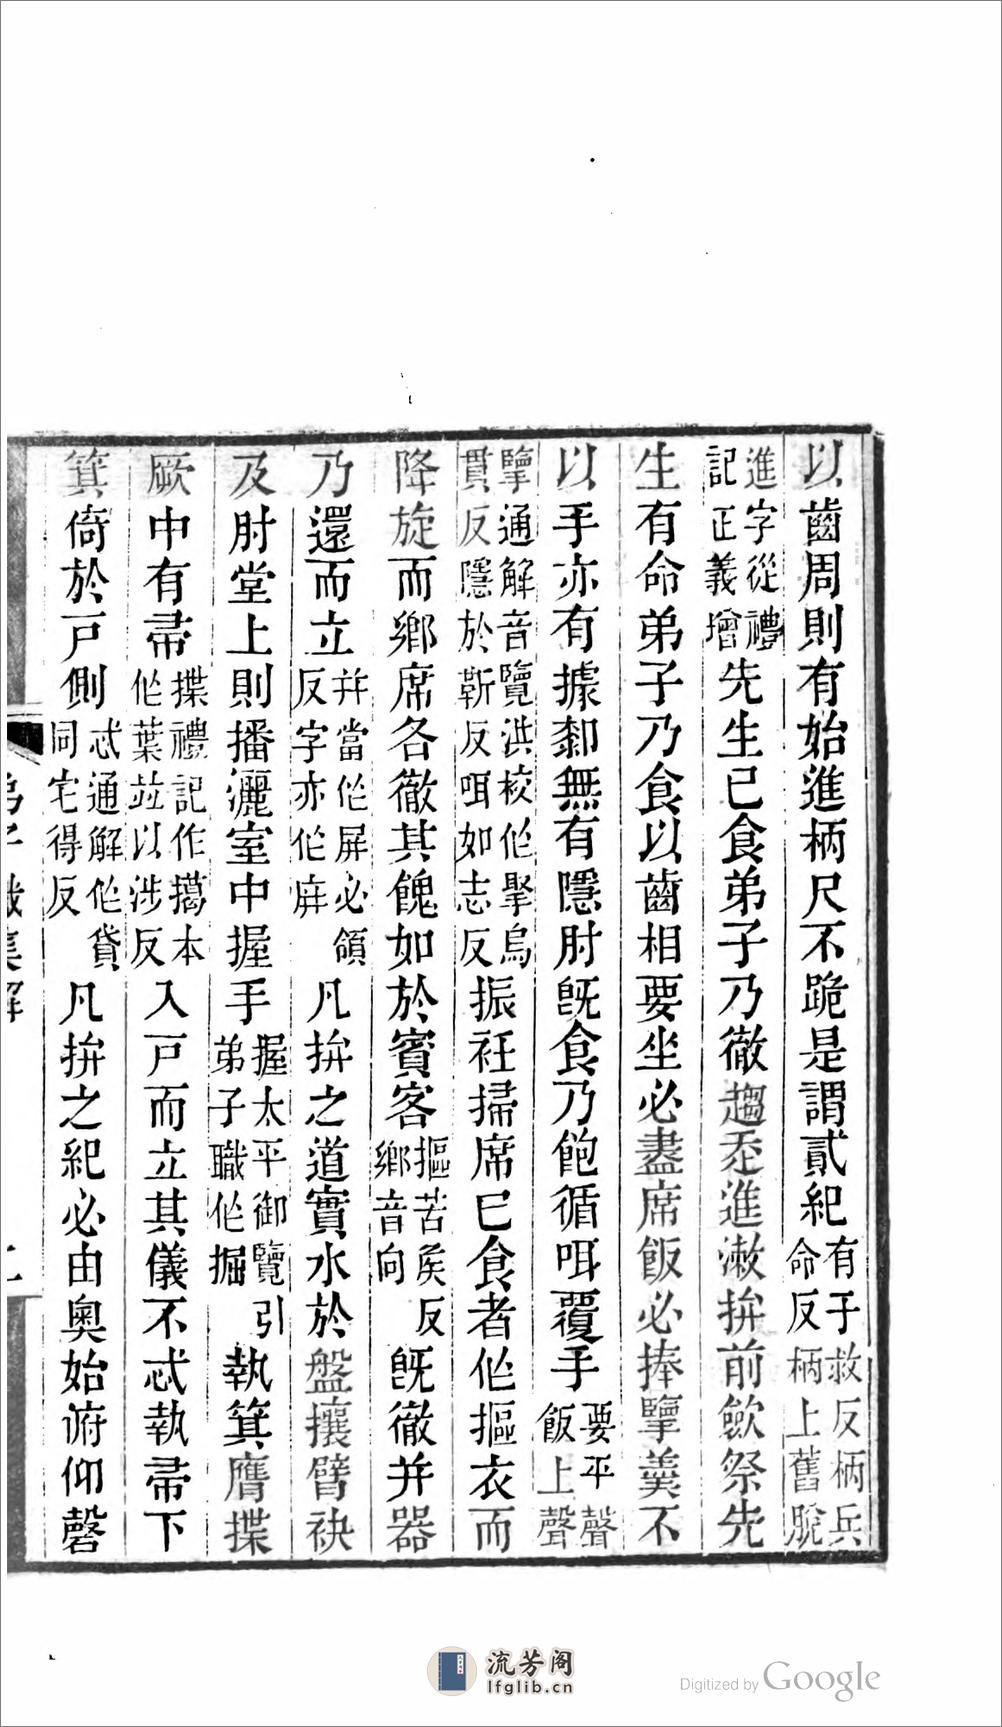 以齒周則有始進柄尺不跪是謂貳紀有于救反柄兵命反柄上舊脫
進字從禮記正義增先生已食弟子乃徹趨走進漱拚前斂祭先
生有命弟子乃食以齒相要坐必盡席飯必捧擥羹不
以手亦有據厀無有隱肘既食乃飽循咡覆手要平聲飯上聲
擥通解音覽洪校作擊烏貫反隱於靳反咡如志反振衽掃席已食者作摳衣而
降旋而鄉席各徹其餽如於賓客摳苦矦反鄉音向既徹并器
乃還而立并當作屏必領反字亦作庰凡拚之道實水於盤攘臂袂
及肘堂上則播灑室中握手握太平御覽引弟子職作掘執箕膺揲
厥中有帚揲禮記作擖本作葉竝以涉反入戶而立其儀不忒執帚下
箕倚於戶側忒通解作貸同宅得反凡拚之紀必由奧始俯仰磬
弟子職集解
二
流芳阁
lfglib.cn
Digitized by Google